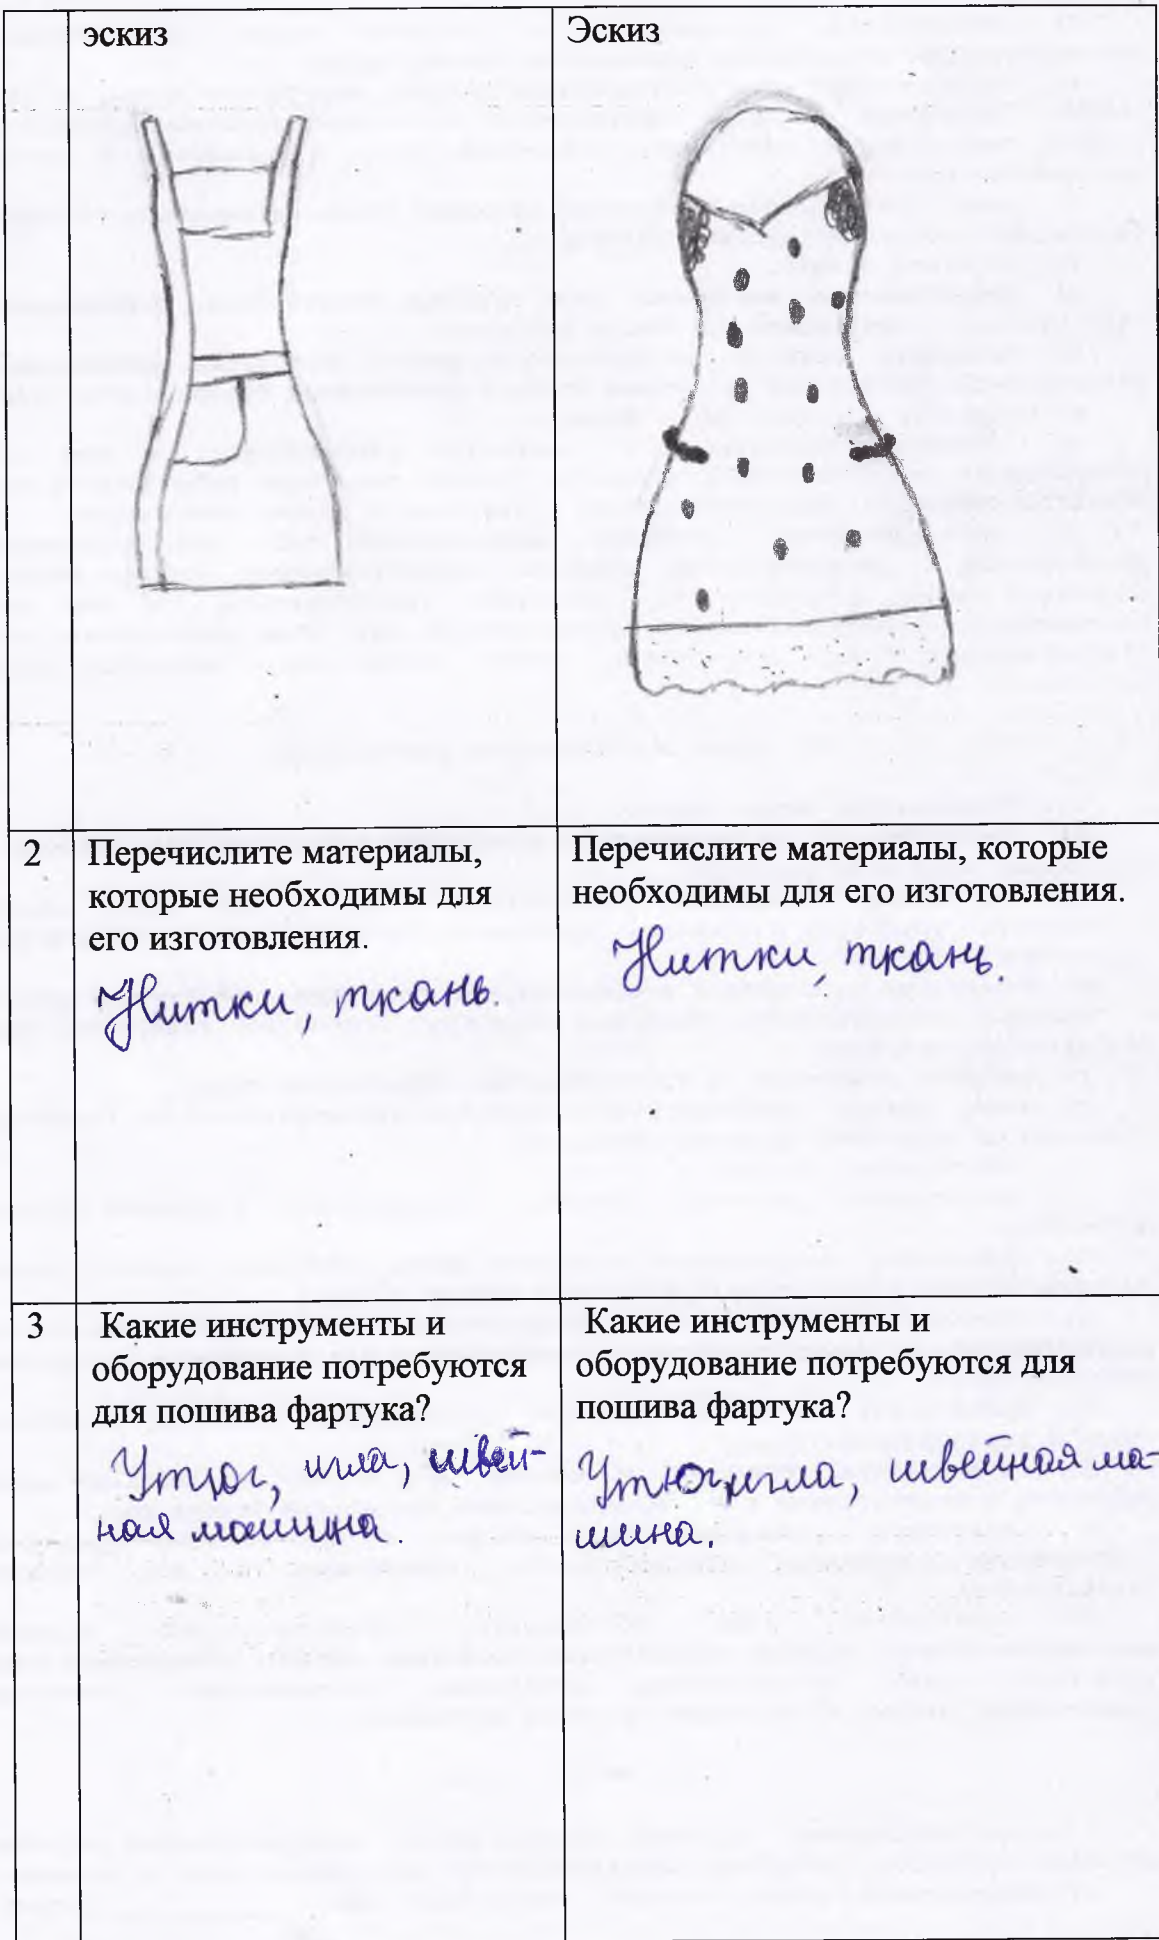 эскиз
Эскиз
2
Перечислите материалы,
которые необходимы для
его изготовления.
Нитки, ткань.
Перечислите материалы, которые
необходимы для его изготовления.
Нитки, ткань.
3
Какие инструменты и
оборудование потребуются
для пошива фартука?
Утюг, игла, швей-
ная машина.
Какие инструменты и
оборудование потребуются для
пошива фартука?
Утюг, игла, швейная ма-
шина.